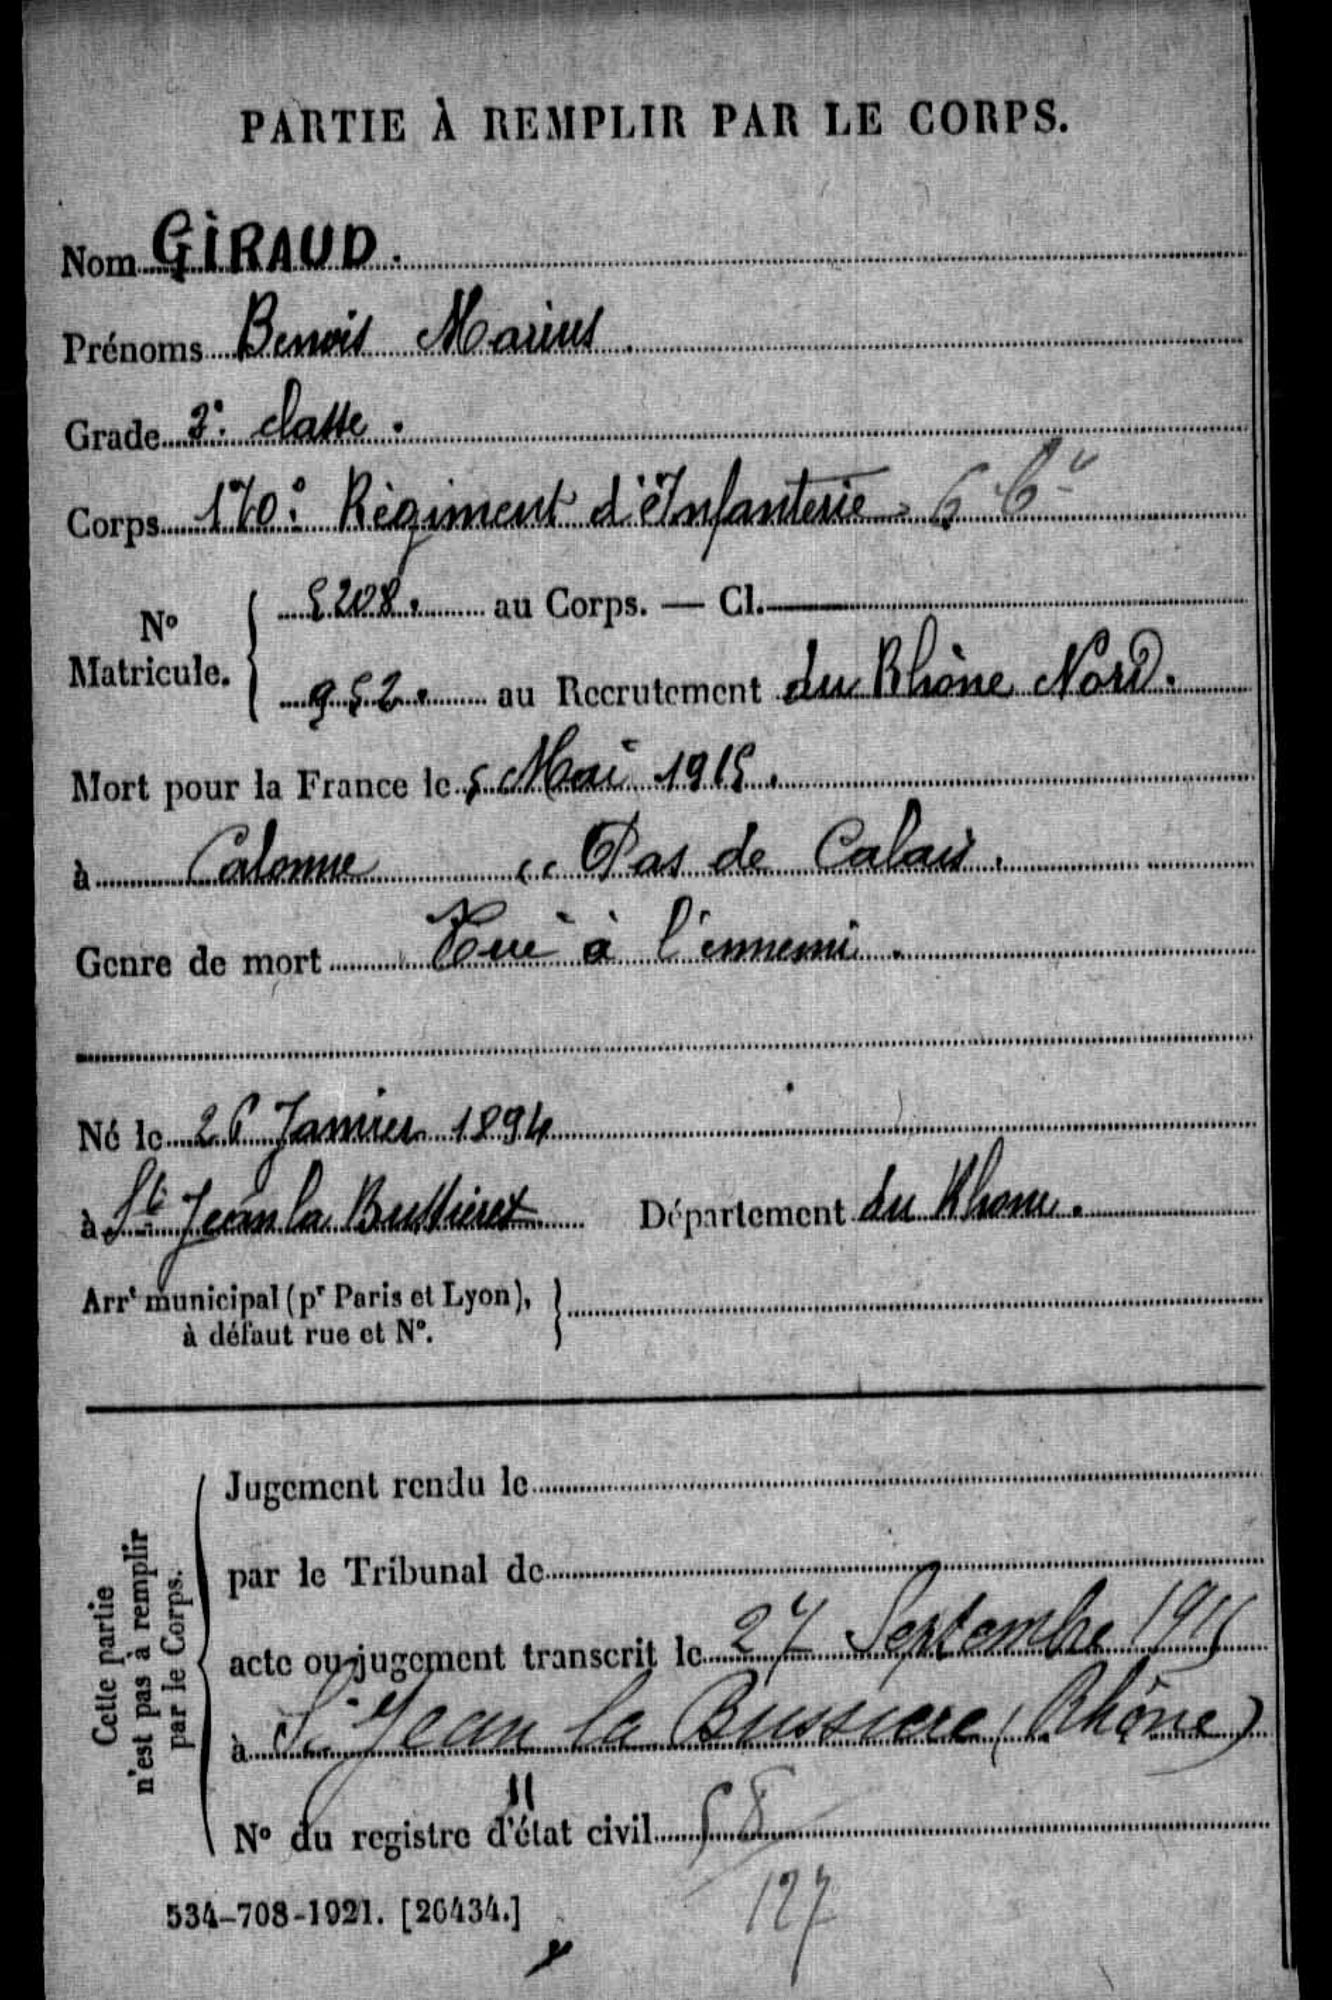 PARTIE À REMPLIR PAR LE CORPS.
Nom GIRAUD.
Prénoms Benoit Marius.
Grade 2e classe.
Corps 170e Régiment d'Infanterie
N° Matricule. { 5208. au Corps. — Cl.
952. au Recrutement du Rhône Nord.
Mort pour la France le 5 Mai 1915.
à Calonne Pas de Calais.
Genre de mort Tué à l'ennemi.
Né le 26 Janvier 1894
à St Jean la Bussières Département du Rhone.
Arrt municipal (pr Paris et Lyon),
à défaut rue et N°.
Cette partie n'est pas à remplir par le Corps.
Jugement rendu le
par le Tribunal de
acte ou jugement transcrit le 27 Septembre 1915
à St Jean la Bussiere (Rhône)
N° du registre d'état civil
534-708-1921. [26434.]
127